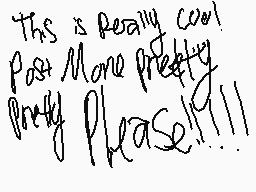 This is Really cool!
Post More pretty
pretty Please!!!!!